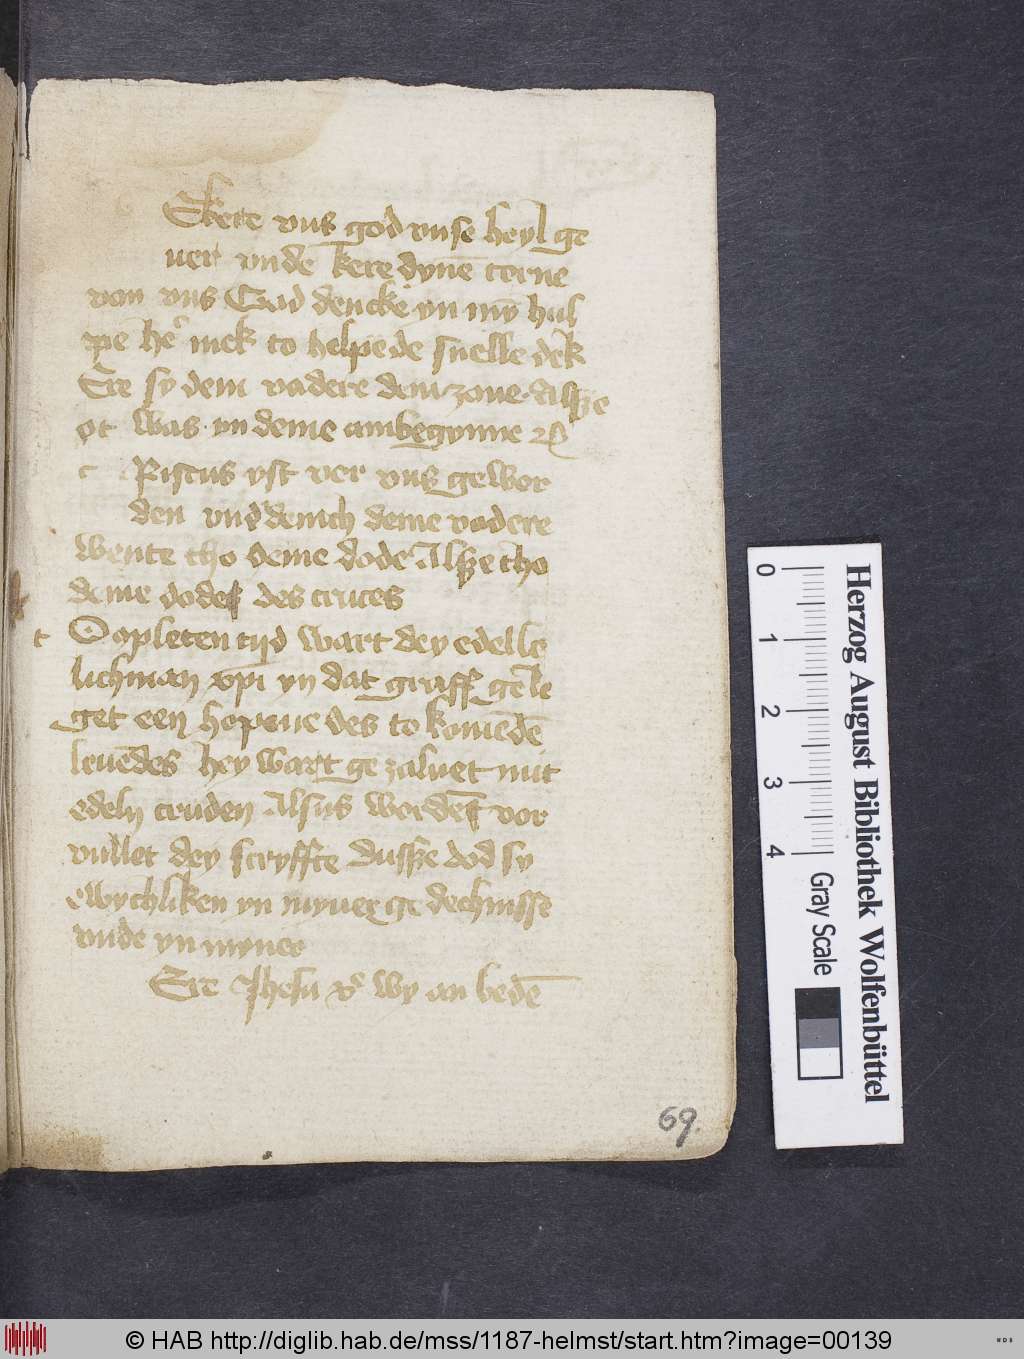 Bkere vns god vnse heyl ge
uer vnde kere dynē torne
van vns God dencke yn my hul
pe he mek to helpede snelle dek
Ere sy dem vadere dem zone Alsze
ot was yn deme ambegynne
c Ristus yst ver vns gewor
den vnderdenich deme vadere
wente tho deme dode Alsze tho
deme dodes des cruces
t O Opleten tijd wart dey edelle
lichman xpi yn dat graff gele
get een hopene des to komēdē
leuēdes hey wart ge zaluet mit
edeln cruden Alsus worden vor
vullet dey scryffte Dussze dod sy
ewychliken yn myner ge dechnisse
vnde yn myner
Ere Jhesu xp wy an bedē
69.
Herzog August Bibliothek Wolfenbüttel
0 1 2 3 4
Gray Scale
© HAB http://diglib.hab.de/mss/1187-helmst/start.htm?image=00139
WDB